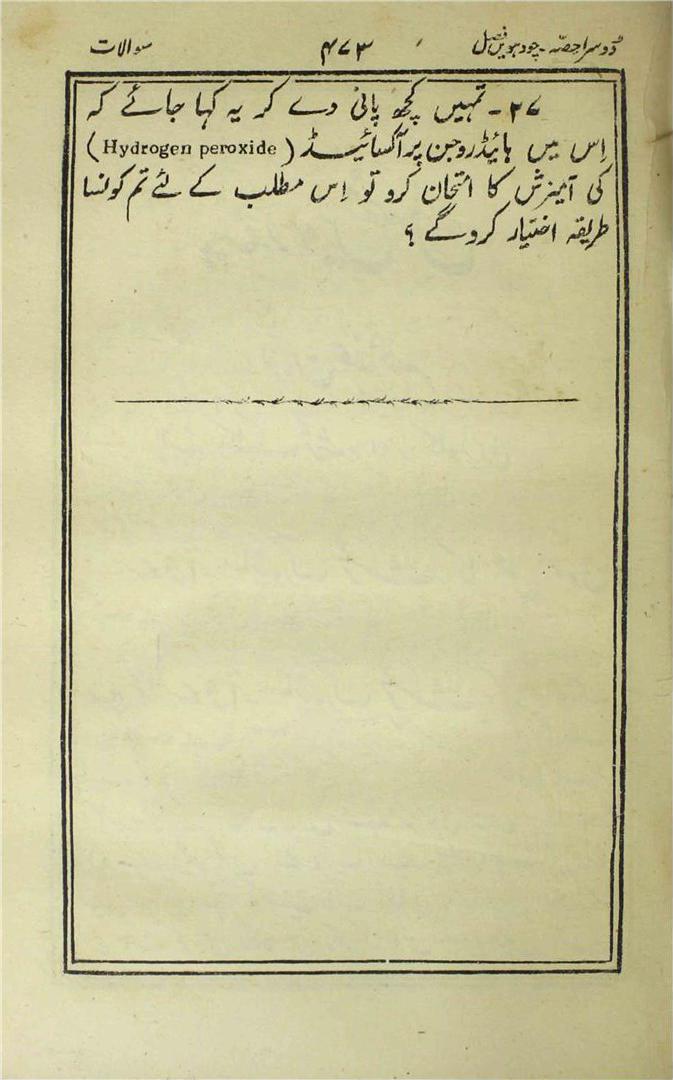 دُوسرا حصّہ ۔ چودہویں فصل ۴۷۳ سوالات
۲۷ ۔ تمہیں کچھ پانی دے کر یہ کہا جائے کہ
اِس میں ہائیڈروجن پرآکسائیڈ (Hydrogen peroxide)
کی آمیزش کا امتحان کرو تو اِس مطلب کے لئے تم کونسا
طریقہ اختیار کروگے ؟